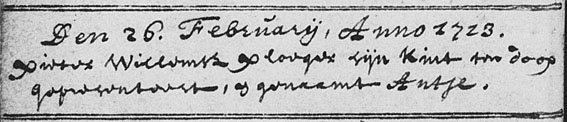 Den 26. February, Anno 1713.
Pieter Willemsz Ploeger syn Kint ten doop
gepresenteert, & genaamt Antje.